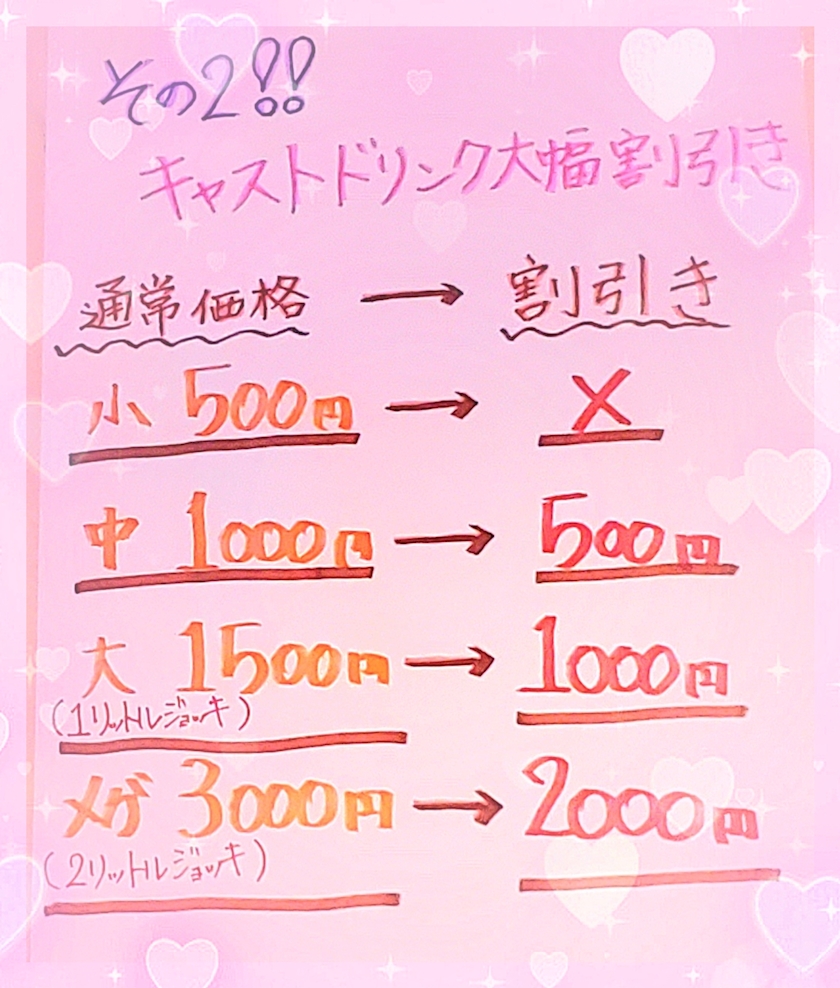 その2!!
キャストドリンク大幅割引き
通常価格 → 割引き
小 500円 → X
中 1000円 → 500円
大 1500円 → 1000円
(1リットルジョッキ)
メガ 3000円 → 2000円
(2リットルジョッキ)